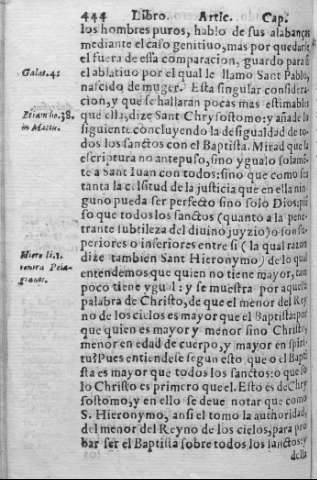 444 Libro. Artic. Cap.
los hombres puros, hablo de sus alabanças
mediante el caso genitiuo, mas por quedarse
el fuera de esta comparacion, guardo para si
Galat. 4.
el ablatiuo por el qual le llamo Sant Pablo,
nascido de muger. Esta singular considera
cion, y que se hallaran pocas mas estimables
38.
que ella, dize Sant Chrysostomo: y añade lo
in Matth.
siguiente concluyendo la desigualdad de to
dos los sanctos con el Baptista. Mirad que la
escriptura no antepuso, sino ygualo solamẽ
te a Sant Iuan con todos: sino que como sea
tanta la celsitud de la justicia que en ella nin
guno pueda ser perfecto sino solo Dios: piẽ
so que todos los sanctos (quanto a la pene
trante subtileza del diuino juyzio) o son su
periores o inferiores entre si (la qual razon
Hiero li. 1.
dize tambien Sant Hieronymo) de lo qual
contra Pela
entendemos que quien no tiene mayor, tam
gianos.
poco tiene ygual: y se muestra por aquella
palabra de Christo, de que el menor del Rey
no de los cielos es mayor que el Baptista: por
que quien es mayor y menor sino Christo,
menor en edad de cuerpo, y mayor en spiri
tu? Pues entiendese segun esto que o el Bapti
sta es mayor que todos los sanctos: o que so
lo Christo es primero que el. Esto es de Chry
sostomo, y en ello se deue notar que como
S. Hieronymo, ansi el tomo la authoridad,
del menor del Reyno de los cielos, para pro
bar ser el Baptista sobre todos los sanctos: y
della